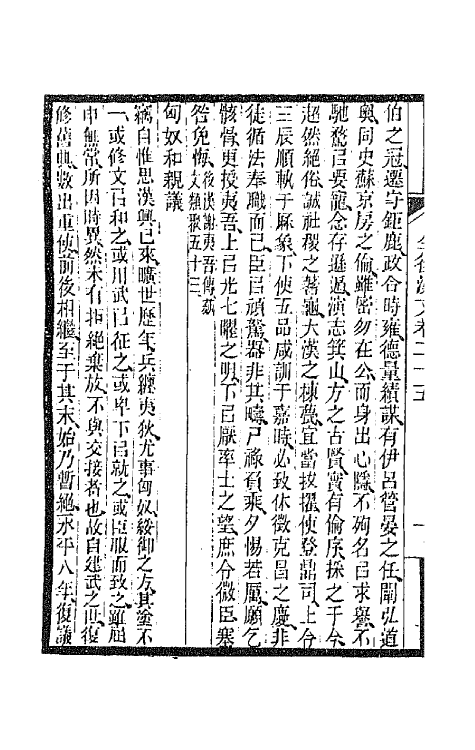 全後漢文卷二十五
伯之冠遷守鉅鹿政合時雍德量績謀有伊呂管晏之任闡弘道
奧同史蘇京房之倫雖密勿在公而身出心隱不殉名㠯求譽不
馳騖㠯要寵念存遜遁演志箕山方之古賢實有倫序採之于今
超然絕俗誠社稷之蓍龜大漢之棟甍宜當拔擢使登鼎司上令
三辰順軌于厤象下使五品咸訓于嘉時必致休徵克昌之慶非
徒循法奉職而已臣㠯頑駑器非其疇尸祿負乘夕惕若厲願乞
骸骨更授夷吾上㠯光七曜之明下㠯厭率土之望庶令微臣塞
咎免悔後漢謝夷吾傳蓺文類聚五十三
匈奴和親議
竊自惟思漢興㠯來曠世歷年兵纏夷狄尤事匈奴綏御之方其塗不
一或修文㠯和之或用武㠯征之或卑下㠯就之或臣服而致之雖屈
申無常所因時異然未有拒絕棄放不與交接者也故自建武之世復
修舊典數出重使前後相繼至于其末始乃暫絕永平八年復議